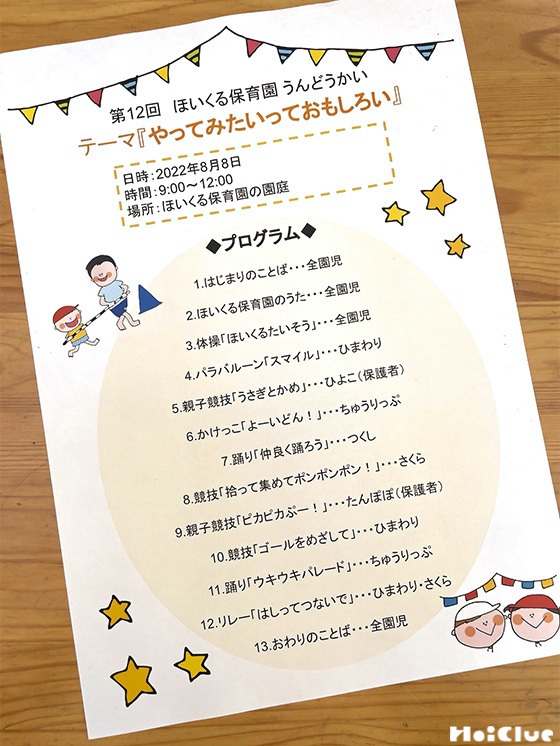 第12回 ほいくる保育園 うんどうかい
テーマ『やってみたいっておもしろい』
日時:2022年8月8日
時間:9:00～12:00
場所:ほいくる保育園の園庭
◆プログラム◆
1.はじまりのことば・・・全園児
2.ほいくる保育園のうた・・・全園児
3.体操「ほいくるたいそう」・・・全園児
4.パラバルーン「スマイル」・・・ひまわり
5.親子競技「うさぎとかめ」・・・ひよこ(保護者)
6.かけっこ「よーいどん!」・・・ちゅうりっぷ
7.踊り「仲良く踊ろう」・・・つくし
8.競技「拾って集めてポンポンポン!」・・・さくら
9.親子競技「ピカピカぶー!」・・・たんぽぽ(保護者)
10.競技「ゴールをめざして」・・・ひまわり
11.踊り「ウキウキパレード」・・・ちゅうりっぷ
12.リレー「はしってつないで」・・・ひまわり・さくら
13.おわりのことば・・・全園児
HoiClue